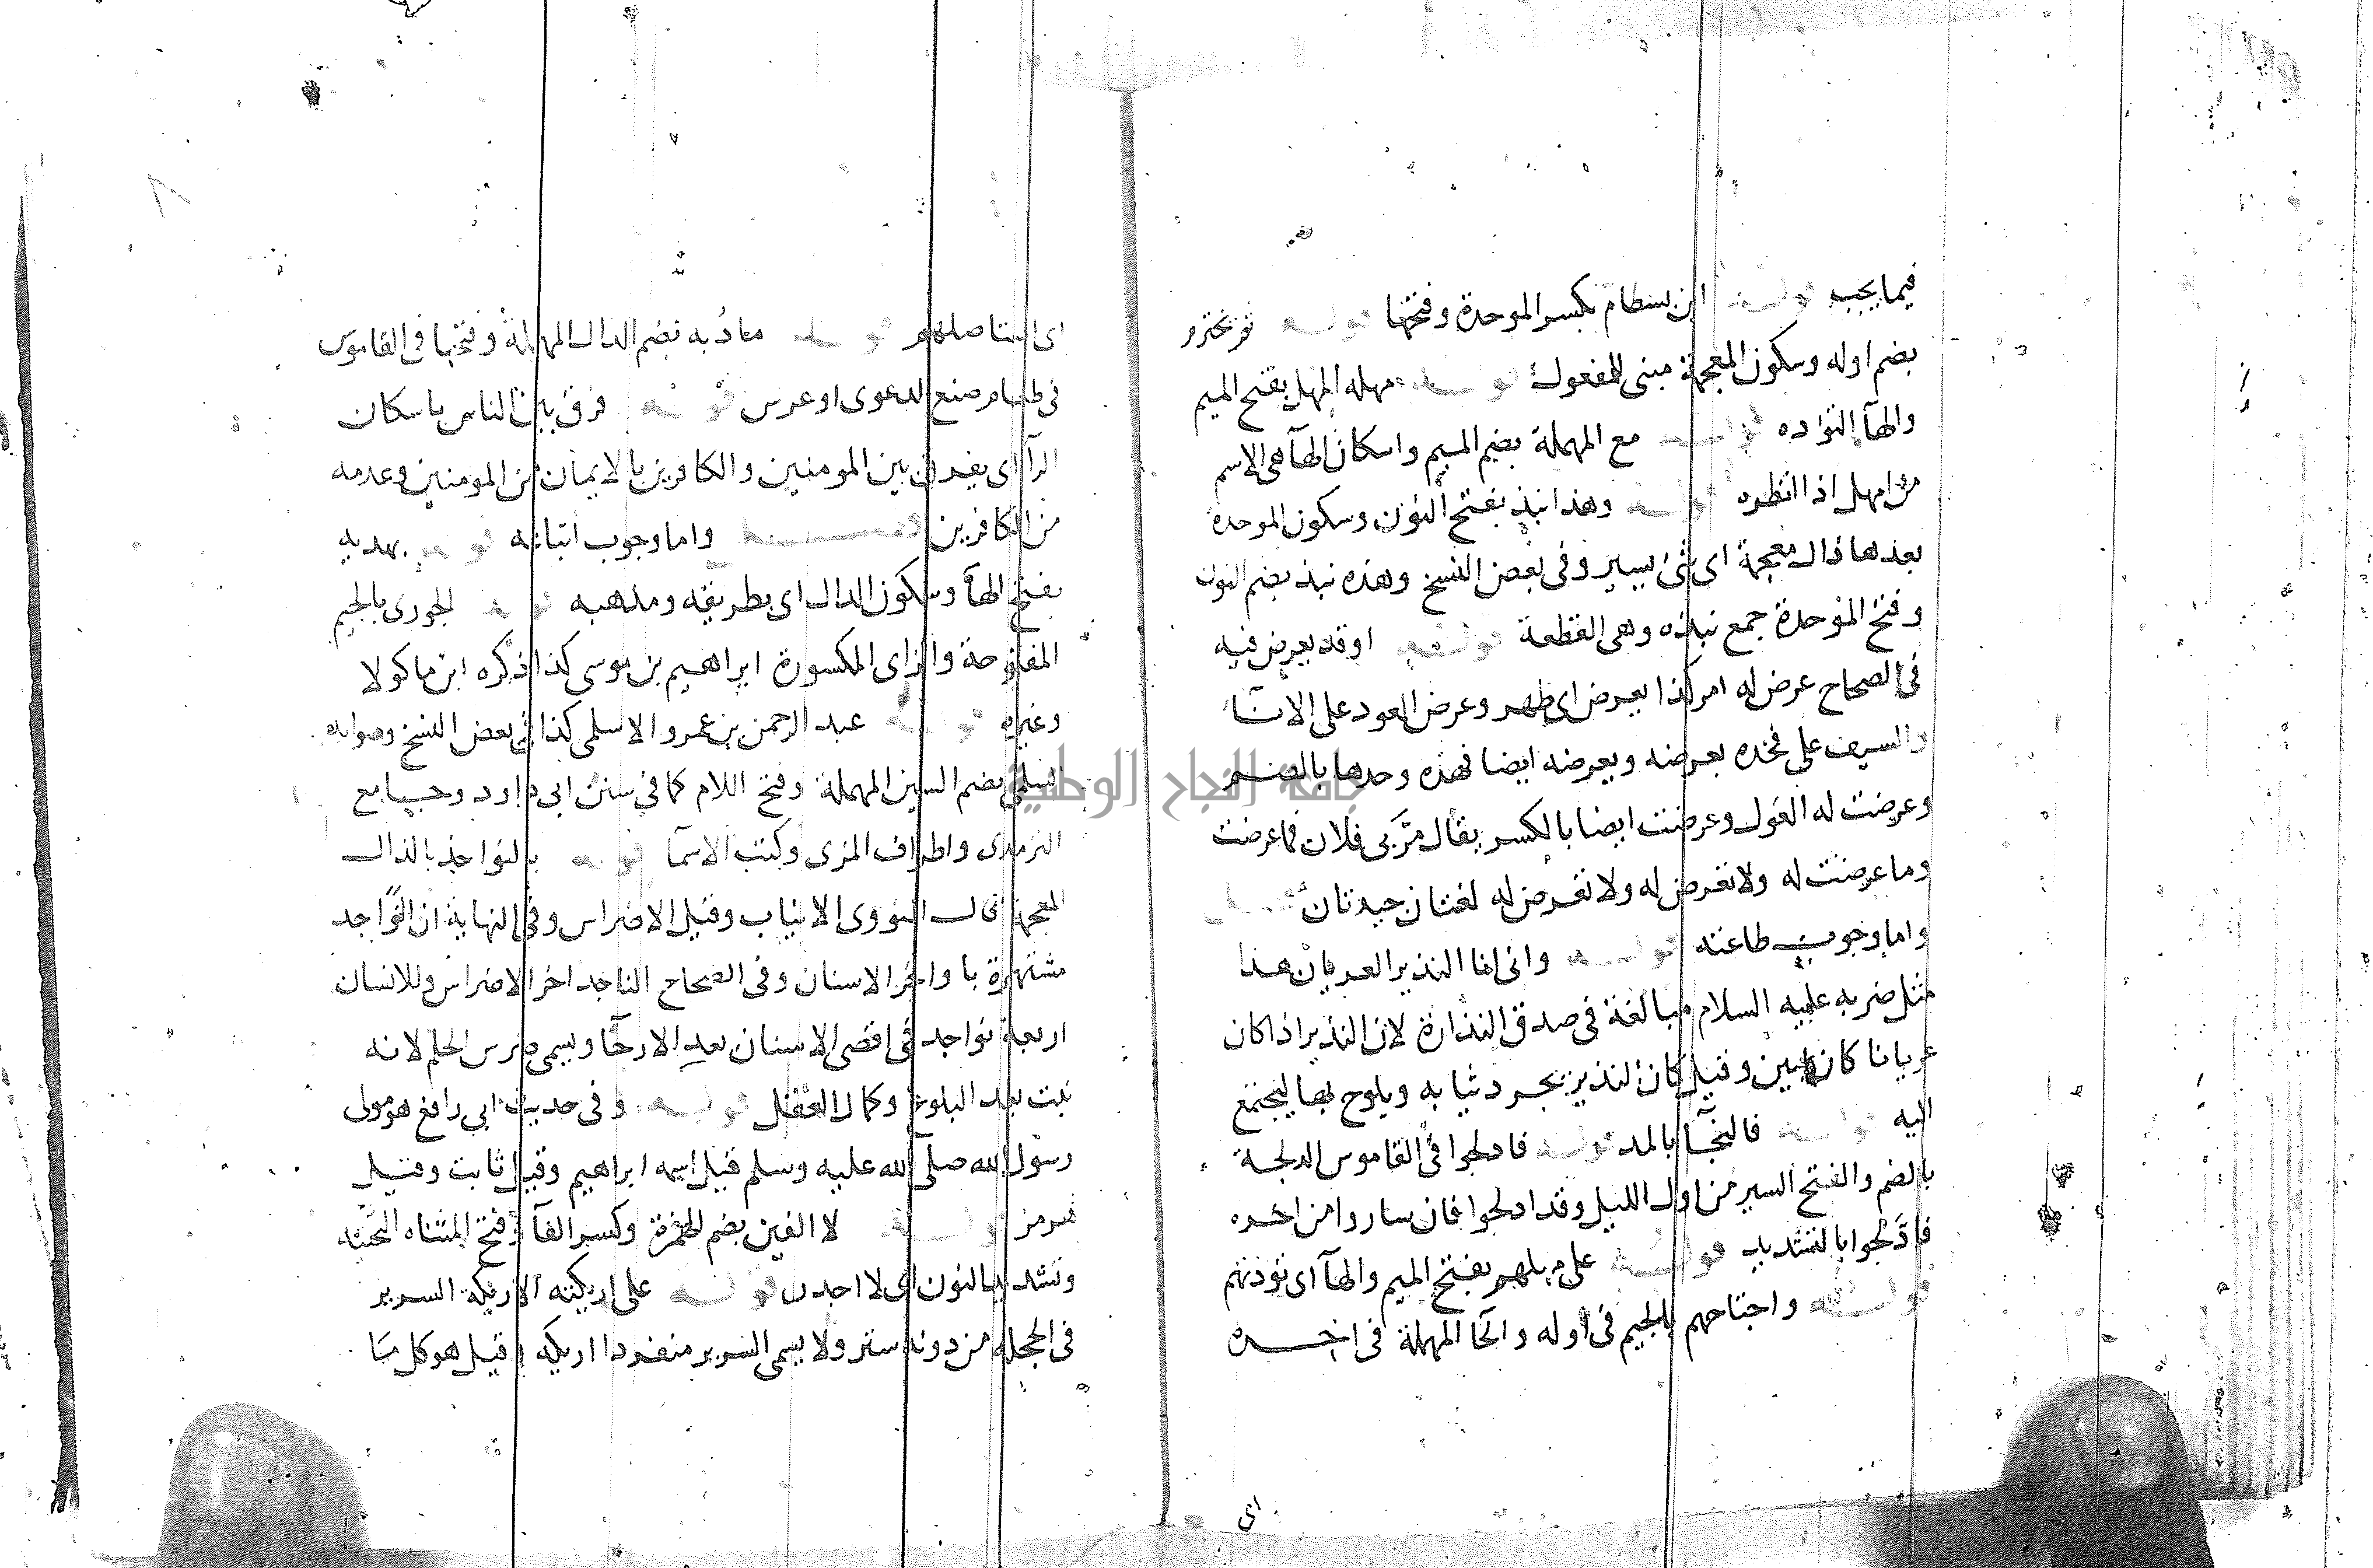 فيما يجب قوله ابن بسطام بكسر الموحدة وفتحها قوله
بضم اوله وسكون المعجمة مبنى للمفعول قوله مهله المهل بفتح الميم
والهآ التؤاده قوله مع المهملة بضم الميم واسكان الهآ هى الاسم
من امهل اذا انظره قوله وهذا نبذ بفتح النون وسكون الموحدة
بعدها ذال معجمة اى شئ يسير وفى بعض النسخ وهذه نبذ بضم النون
وفتح الموحدة جمع نبذه وهى القطعة قوله او قد يعرض فيه
فى الصحاح عرض له امر كذا يعرض اى ظهر وعرض العود على الانآء
والسيف على فخذه يعرضه ويعرضه ايضا فهذه وحدها بالضم
وعرضت له الغول وعرضت ايضا بالكسر يقال مَرَّ بى فلان فما عرضت
وما عرضت له ولا تعرض له ولا تعرض له لغتان جيدتان
واما وجوب طاعته قوله وانى انا النذير العريان هذا
مثل ضربه عليه السلام مبالغة فى صدق النذارة لان النذير اذا كان
عريانا كان ابين وقيل كان النذير يجرد ثيابه ويلوح بها ليجتمع
اليه قوله فالنجآ بالمد قوله فادلجوا فى القاموس الدلجة
بالضم والفتح السير من اول الليل وقد ادلجوا فان ساروا من اخره
فادَّلجوا بالتشديد قوله على مهلهم بفتح الميم والهآ اى تؤدتهم
قوله واجتاحهم بالجيم فى اوله والحا المهملة فى اخره
اى
اى استاصلهم قوله مادُبه بضم الدال المهملة وفتحها فى القاموس
فى طعام صنع لدعوى او عرس قوله فرق بين الناس باسكان
الرآ اى يفرق بين المومنين والكافرين بالايمان من المومنين وعدمه
من الكافرين واما وجوب اتباعه قوله بهديه
بفتح الهآ وسكون الدال اى بطريقه ومذهبه قوله الجوزى بالجيم
المفتوحة والزاى المكسورة ابراهيم بن موسى كذا ذكره ابن ماكولا
وغيره قوله عبد الرحمن بن عمرو الاسلمى كذا فى بعض النسخ وصوابه
السلمى بضم السين المهملة وفتح اللام كما فى سنن ابى داود وجامع
الترمذى واطراف المزى وكتب الاسمآ قوله بالنواجذ بالذال
المعجمة قال النووى الانياب وقيل الاضراس وفى النهاية ان النواجد
مشتهرة با واخر الاسنان وفى الصحاح الناجد اخر الاضراس وللانسان
اربعة نواجد فى اقصى الاسنان بعد الارحآ ويسمى ضرس الحلم لانه
نبت بعد البلوغ وكمال العقل قوله وفى حديث ابى رافع هو مولى
رسول الله صلى الله عليه وسلم قيل اسمه ابراهيم وقيل ثابت وقيل
هرمز قوله لا الفين بضم الهمزة وكسر الفآ وفتح المثناه التحتيه
وتشديد النون اى لا اجدن قوله على اريكته الاريكة السرير
فى الحجله من دونه ستر ولا يسمى السرير منفردا اريكه وقيل هو كل ما
جامعة النجاح الوطنية